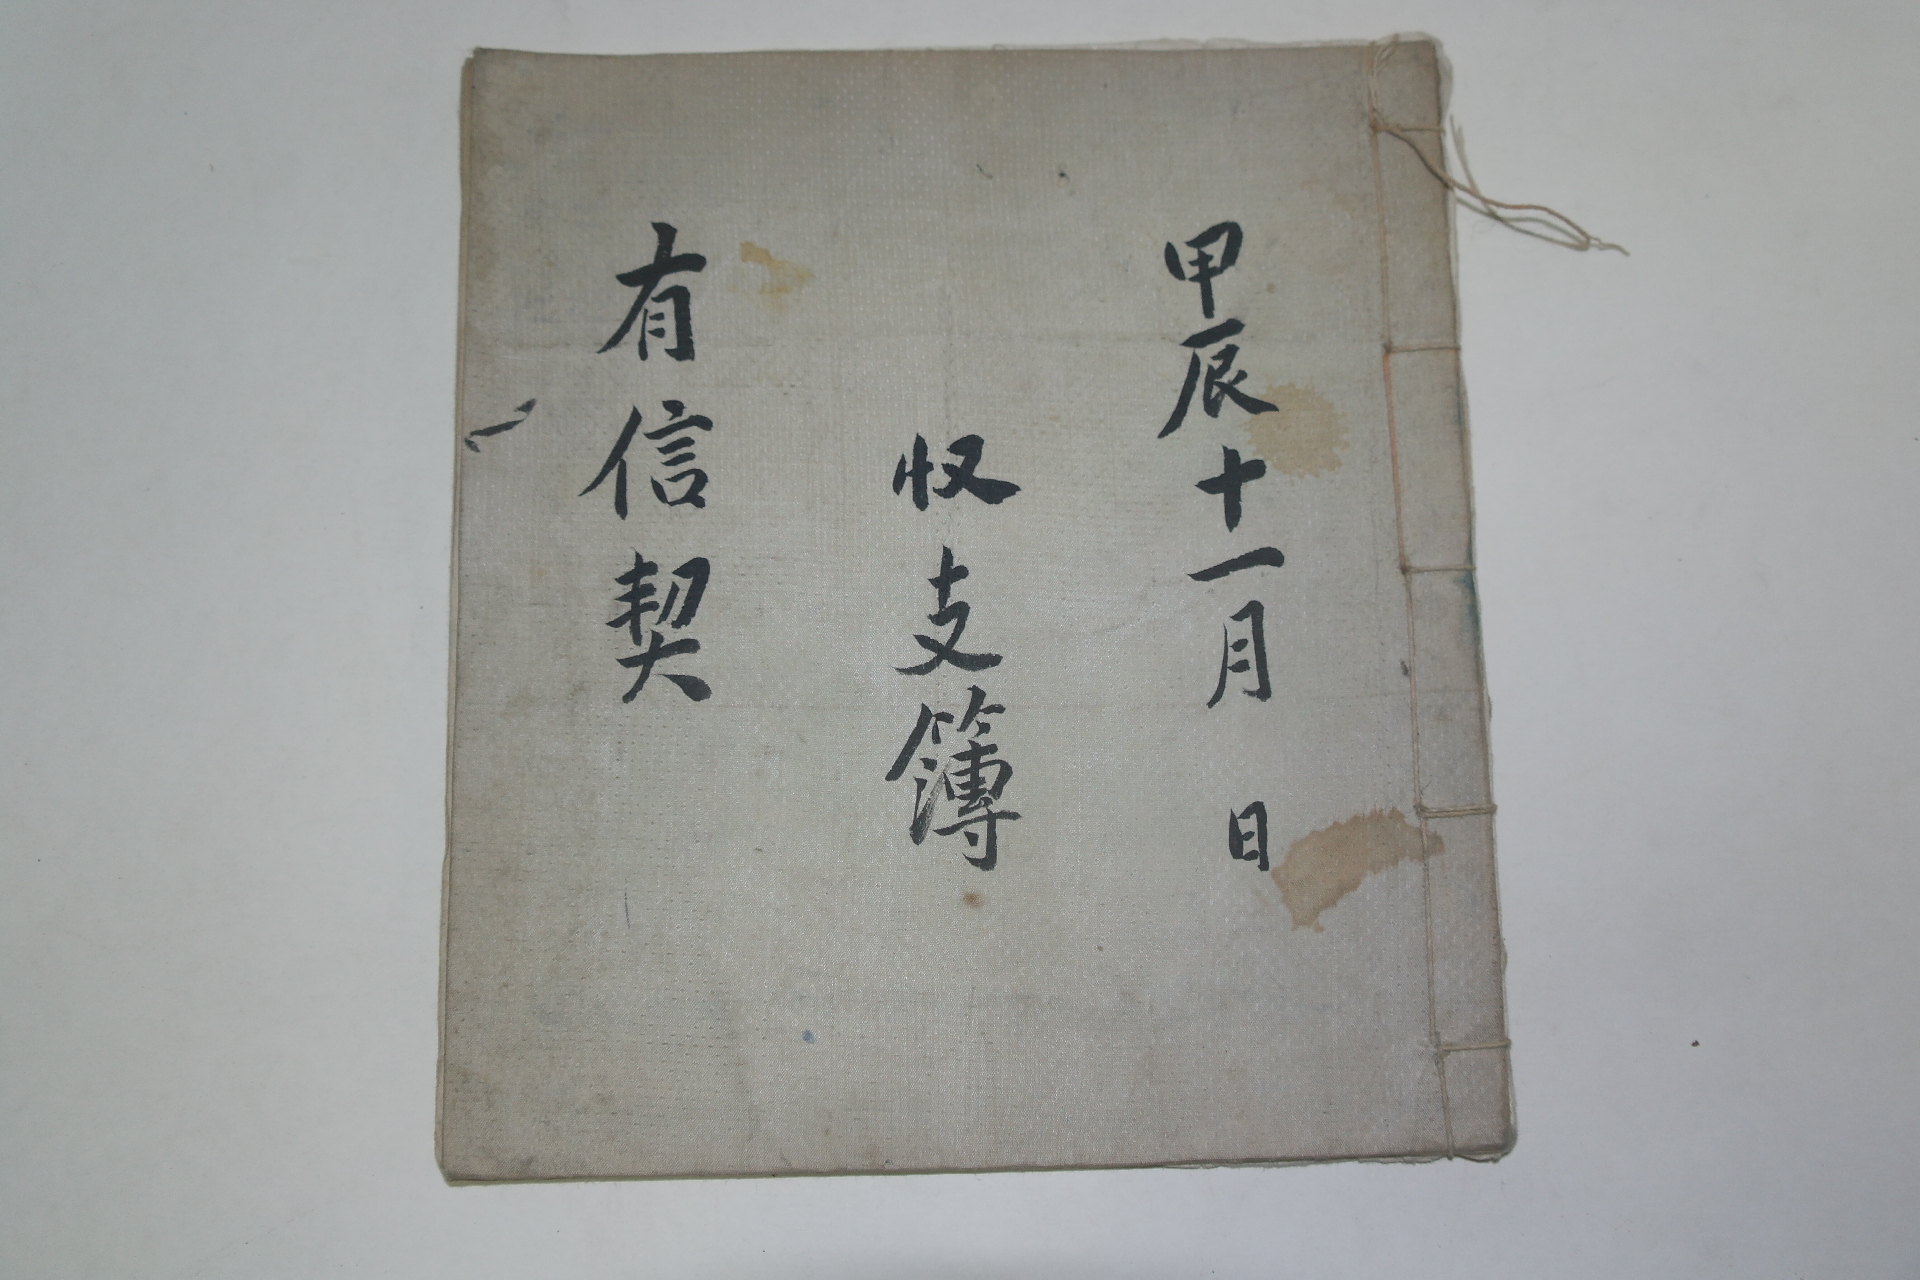 甲辰十一月 日
収支簿
有信契